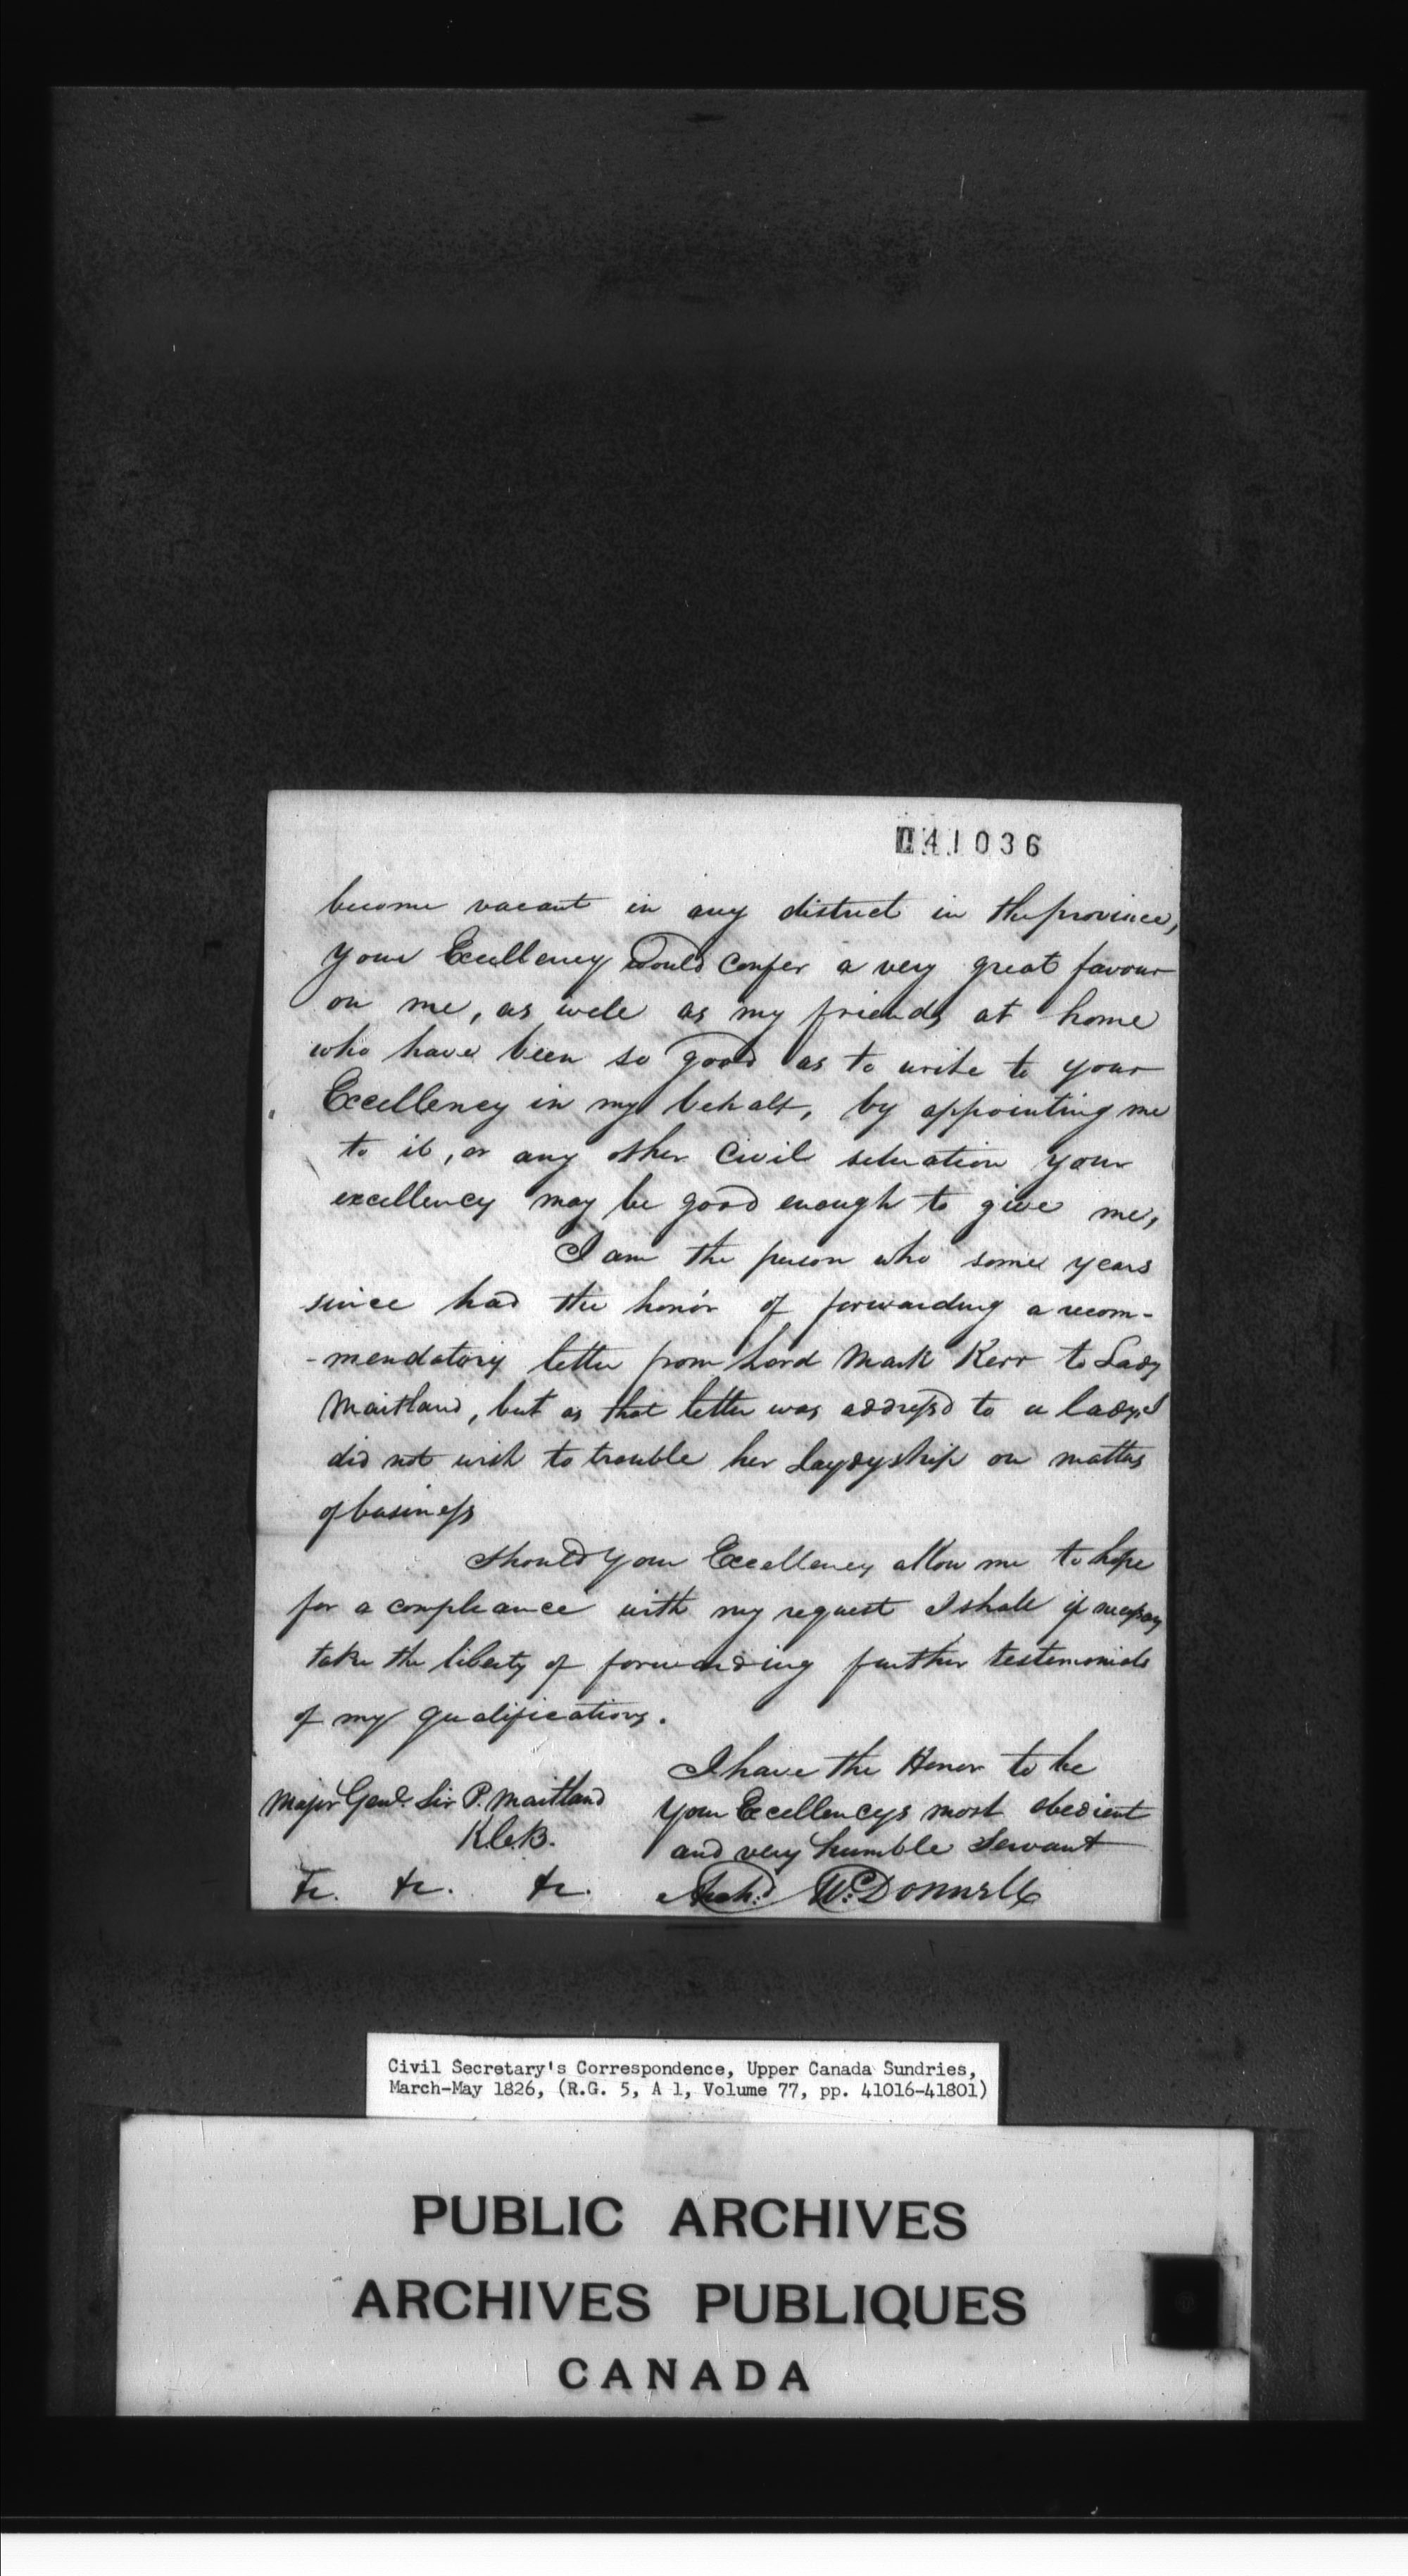 041036
become vacant in any district in the province,
your Excellency would confer a very great favour
on me, as well as my friends at home
who have been so good as to write to your
Excellency in my behalf, by appointing me
to it, or any other Civil situation your
excellency may be good enough to give me,
I am the person who some years
since had the honor of forwarding a recom-
-mendatory letter from Lord Mark Kerr to Lady
Maitland, but as that letter was addressd to a lady I
did not wish to trouble her Laydyship on matters
of business
Should your Excellency allow me to hope
for a compleance with my request I shall if necessary
take the liberty of forwarding further testemonials
of my qualifications.
I have the Honor to be
your Excellencys most obedient
and very humble Servant
Archd. McDonnell
Major Genl. Sir P. Maitland
K.C.B.
&c. &c. &c.
Civil Secretary's Correspondence, Upper Canada Sundries,
March-May 1826, (R.G. 5, A 1, Volume 77, pp. 41016-41801)
PUBLIC ARCHIVES
ARCHIVES PUBLIQUES
CANADA